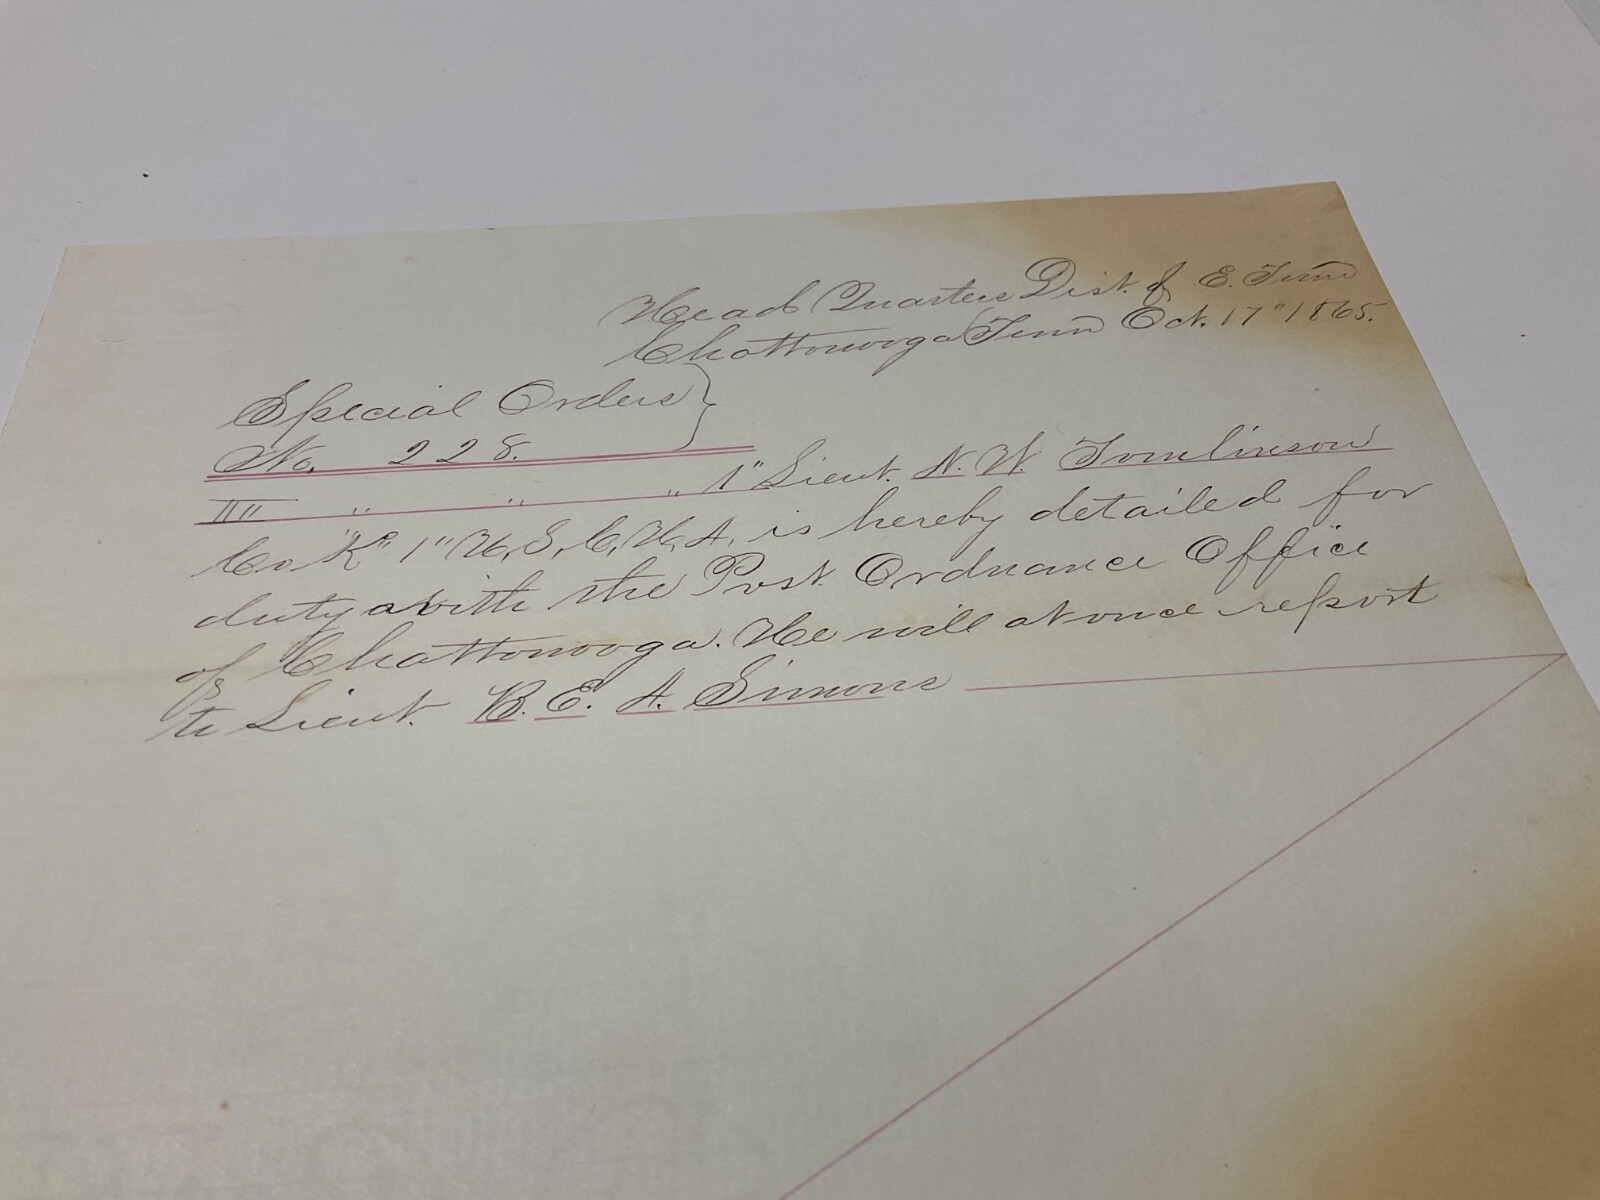 Head Quarters Dist. of E. Tenn
Chattanooga Tenn Oct. 17" 1865.
Special Orders }
No. 228.
III" " " " 1" Lieut. N. W. Tomlinson
Co "K" 1" U.S.C.H.A. is hereby detailed for
duty with the Post Ordnance Office
of Chattanooga. He will at once report
to Lieut. B. E. A. Simons